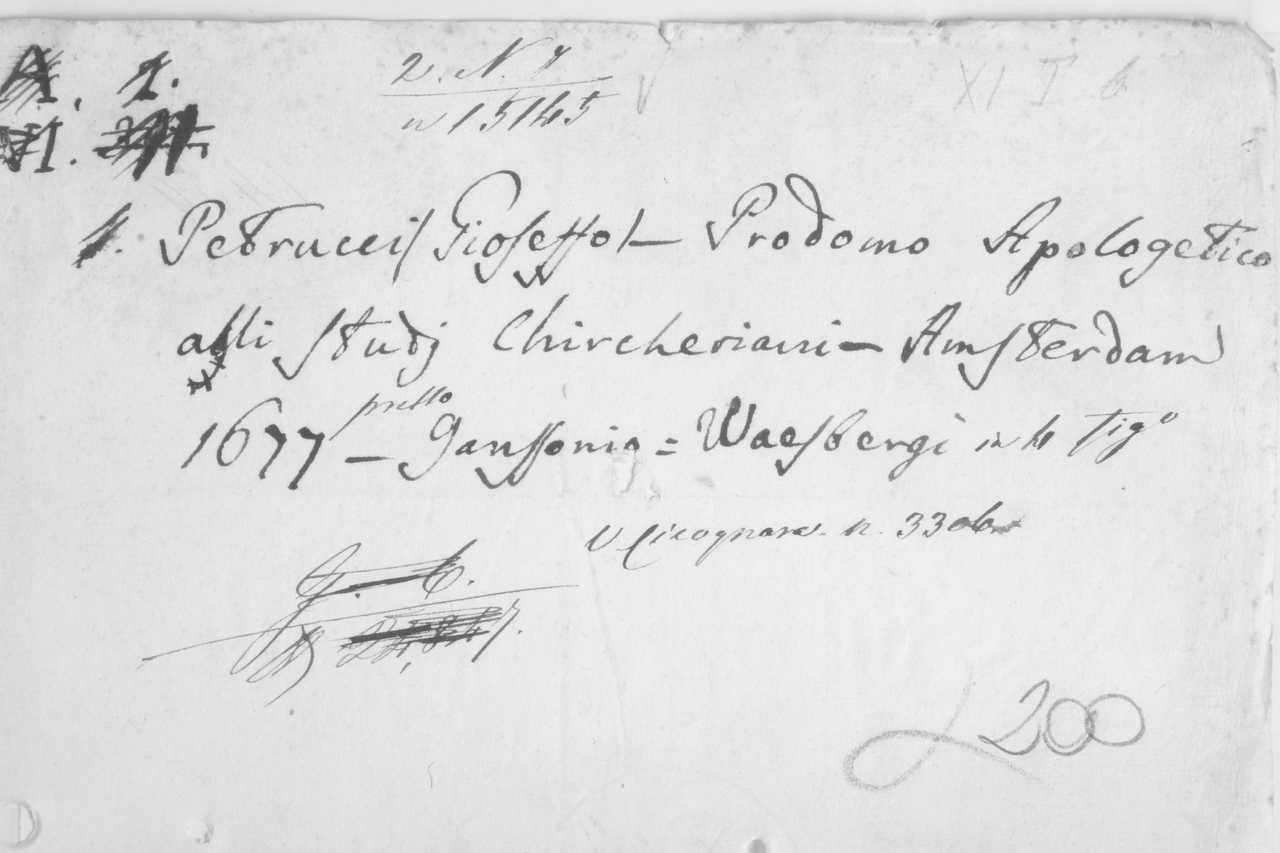 A. 1.
2. N. 7
XI I 6
n 15145
VI.
1. Petruccij (Gioseffo) – Prodomo Apologetico
alli studj Chircheriani – Amsterdam
1677 – presso Ganssonio = Waesbergi in 4 figo
V. Cicognara. n. 3306
G. C.
£ 200